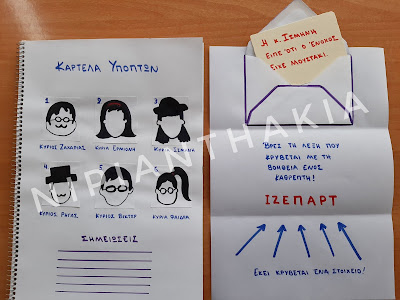 ΚΑΡΤΕΛΑ ΥΠΟΠΤΩΝ
1 2 3
ΚΥΡΙΟΣ ΖΑΧΑΡΙΑΣ ΚΥΡΙΑ ΕΡΜΙΟΝΗ ΚΥΡΙΑ ΙΣΜΗΝΗ
4 5 6
ΚΥΡΙΟΣ ΡΗΓΑΣ ΚΥΡΙΟΣ ΒΙΚΤΩΡ ΚΥΡΙΑ ΦΑΙΔΡΑ
ΣΗΜΕΙΩΣΕΙΣ
Η κ. ΙΣΜΗΝΗ
ΕΙΠΕ ΌΤΙ Ο ΈΝΟΧΟΣ
ΕΙΧΕ ΜΟΥΣΤΑΚΙ.
ΒΡΕΣ ΤΗ ΛΕΞΗ ΠΟΥ
ΚΡΥΒΕΤΑΙ ΜΕ ΤΗ
ΒΟΗΘΕΙΑ ΕΝΟΣ
ΚΑΘΡΕΠΤΗ!
ΙΖΕΠΑΡΤ
ΕΚΕΙ ΚΡΥΒΕΤΑΙ ΕΝΑ ΣΤΟΙΧΕΙΟ!
NIPIANTHAKIA